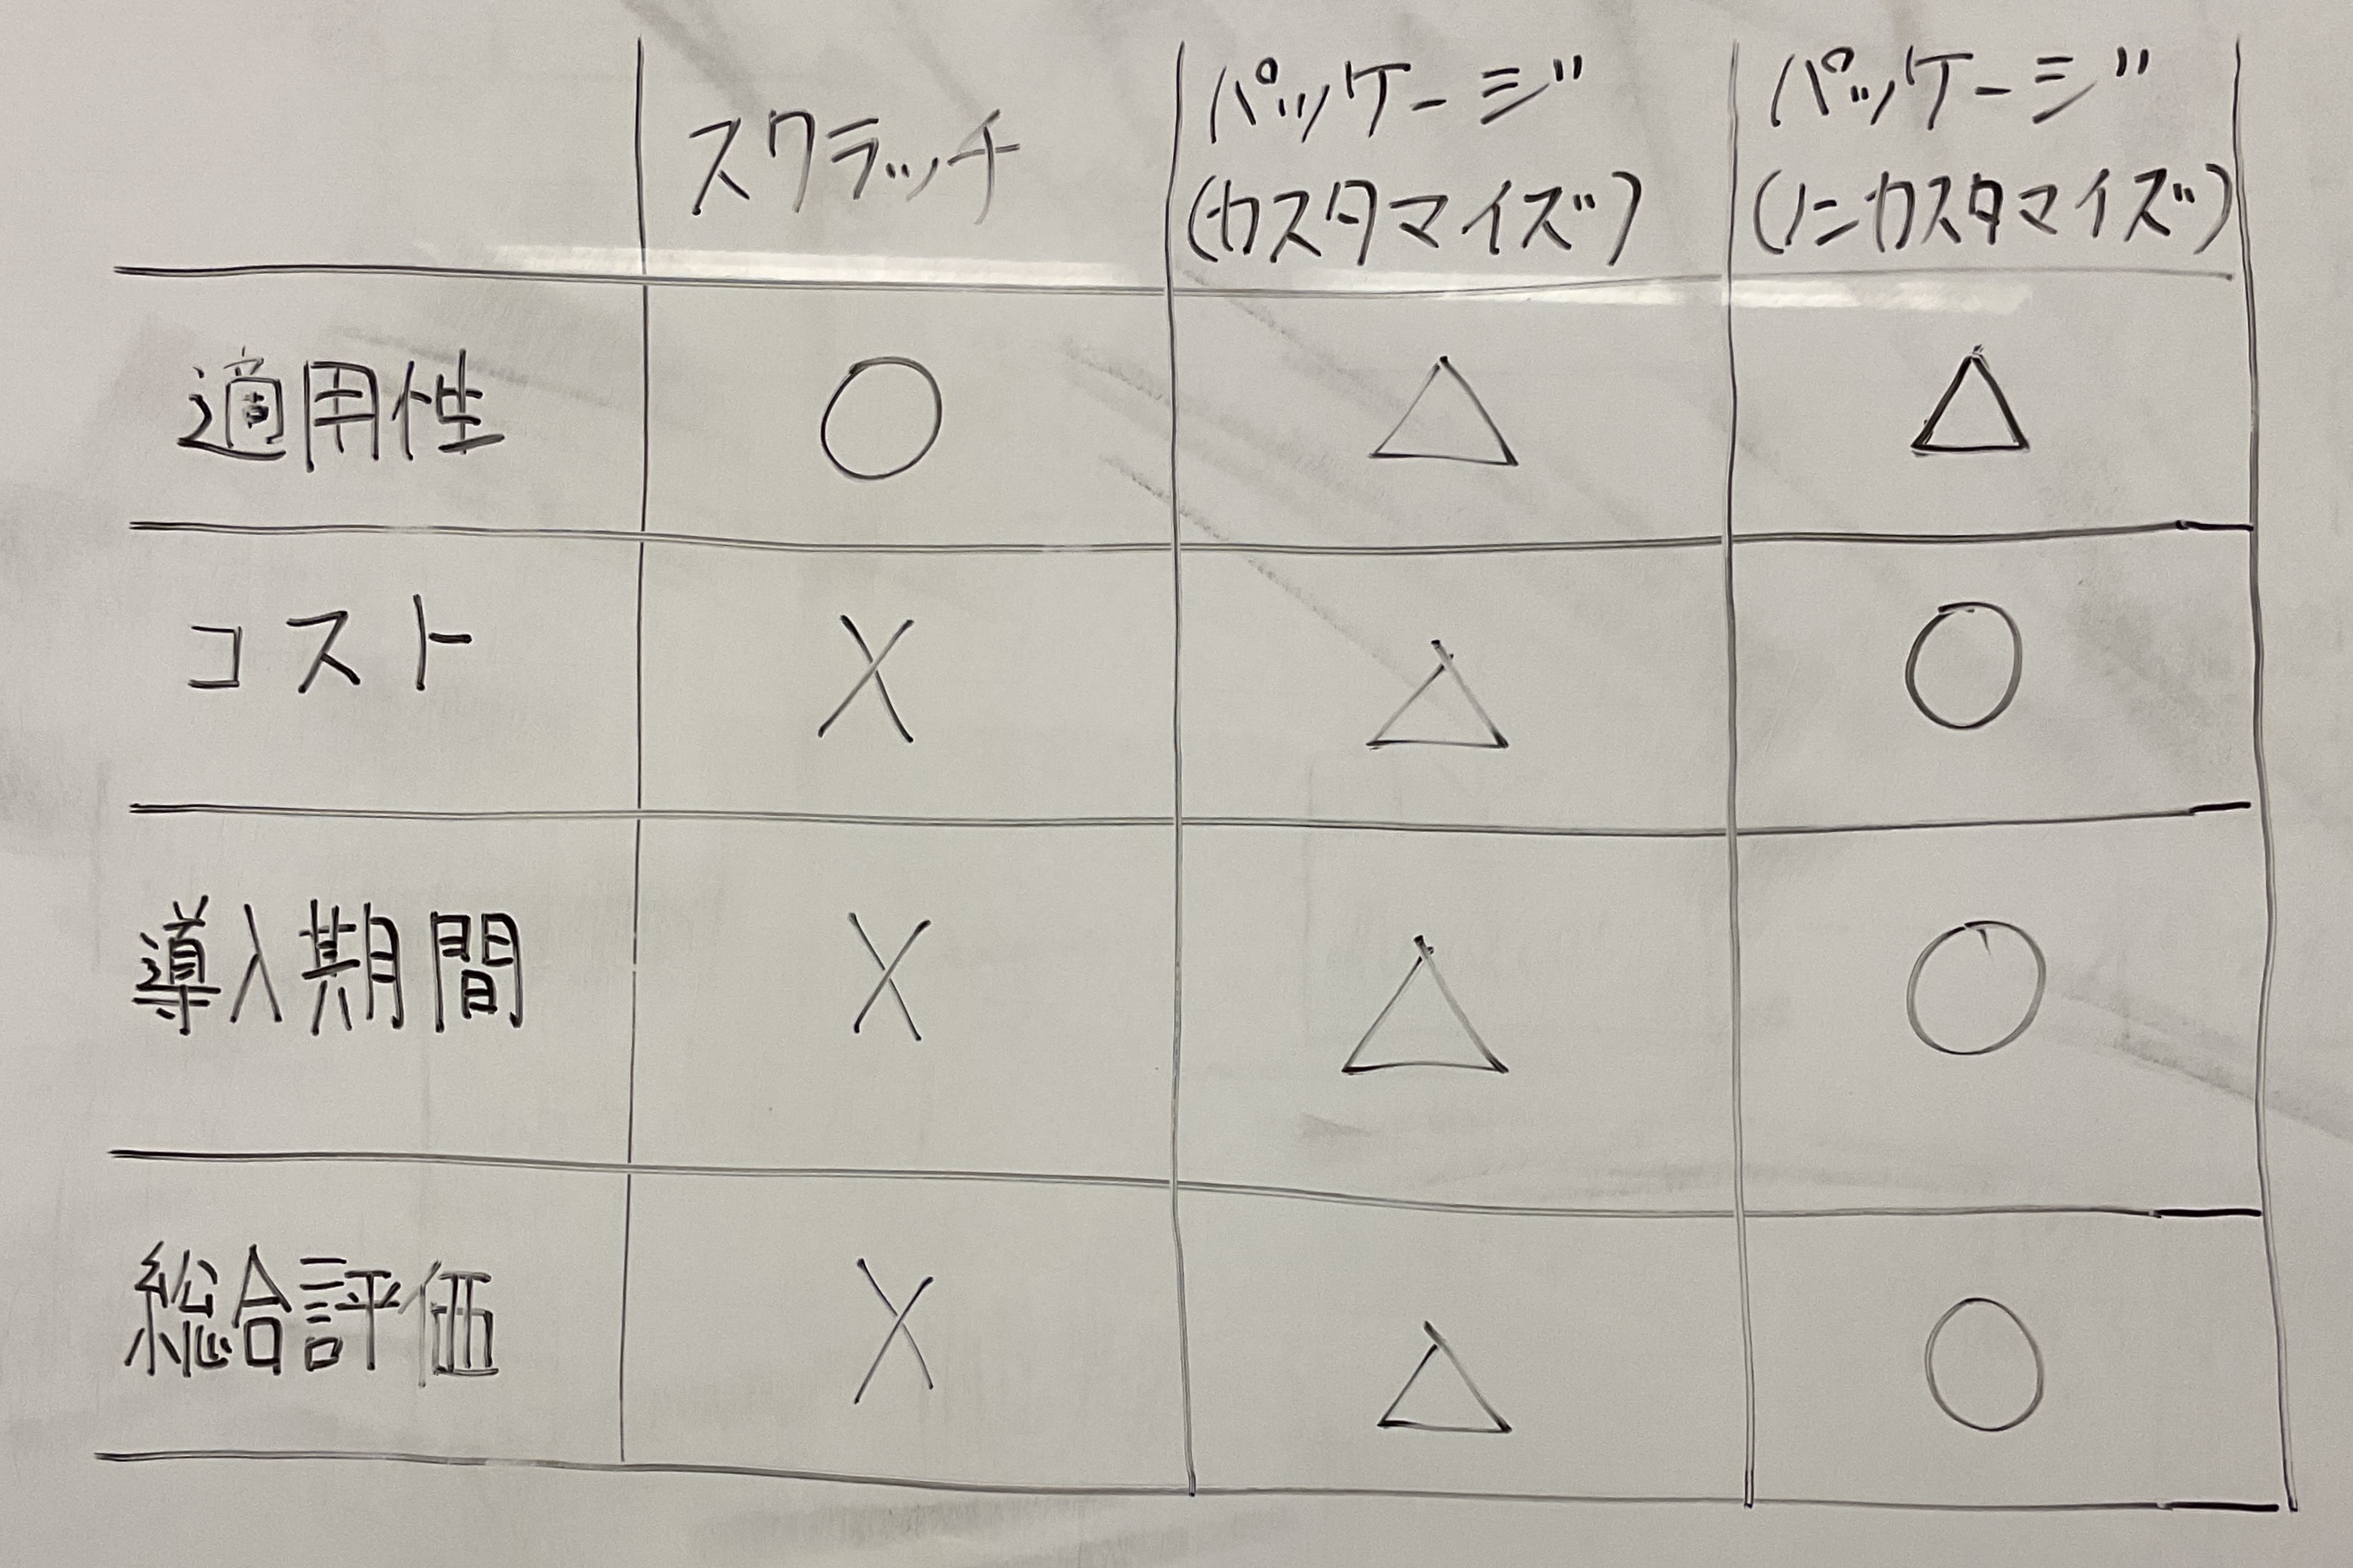 スクラッチ
パッケージ
(カスタマイズ)
パッケージ
(ノンカスタマイズ)
適用性 ○ △ △
コスト × △ ○
導入期間 × △ ○
総合評価 × △ ○